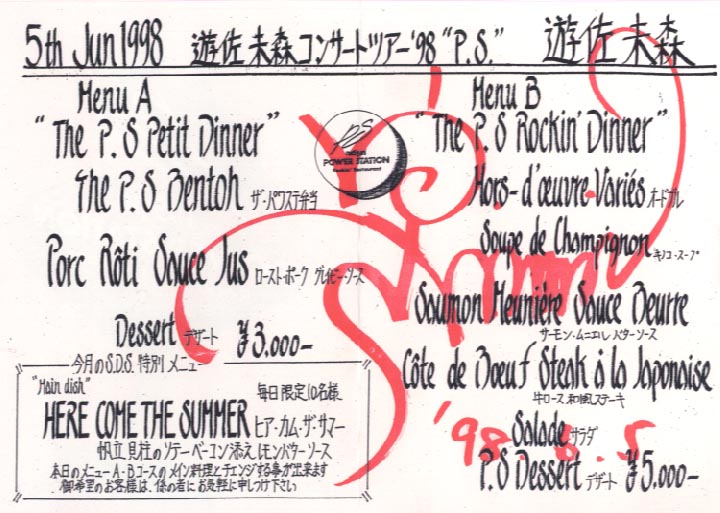 5th Jun 1998 遊佐未森コンサートツアー'98 "P.S." 遊佐未森
Menu A
"The P.S Petit Dinner"
The P.S Bentoh ザ・パワステ弁当
Porc Rôti Sauce Jus ローストポーク グレイビーソース
Dessert デザート ¥3,000-
今月のS.D.S. 特別メニュー
"Main dish" 毎日限定10名様
HERE COME THE SUMMER ヒア・カム・ザ・サマー
帆立貝柱のソテーベーコン添えレモンバターソース
本日のメニューA・Bコースのメイン料理とチェンジする事が出来ます
御希望のお客様は、係の者にお気軽に申しつけ下さい
POWER STATION
Rockin' Restaurant
Menu B
"The P.S Rockin' Dinner"
Hors-d'œuvre Variés オードブル
Soupe de Champignon キノコ・スープ
Saumon Meunière Sauce Beurre
サーモン・ムニエル バターソース
Côte de Bœuf Steak à la Japonaise
牛ロース 和風ステーキ
Salade サラダ
P.S Dessert デザート ¥5,000-
'98. 6. 5